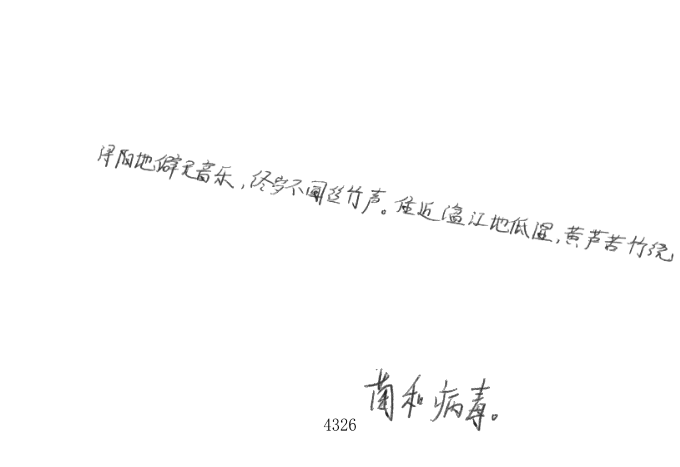 浔阳地僻无音乐，终岁不闻丝竹声。住近湓江地低湿，黄芦苦竹绕
菌和病毒。
4326